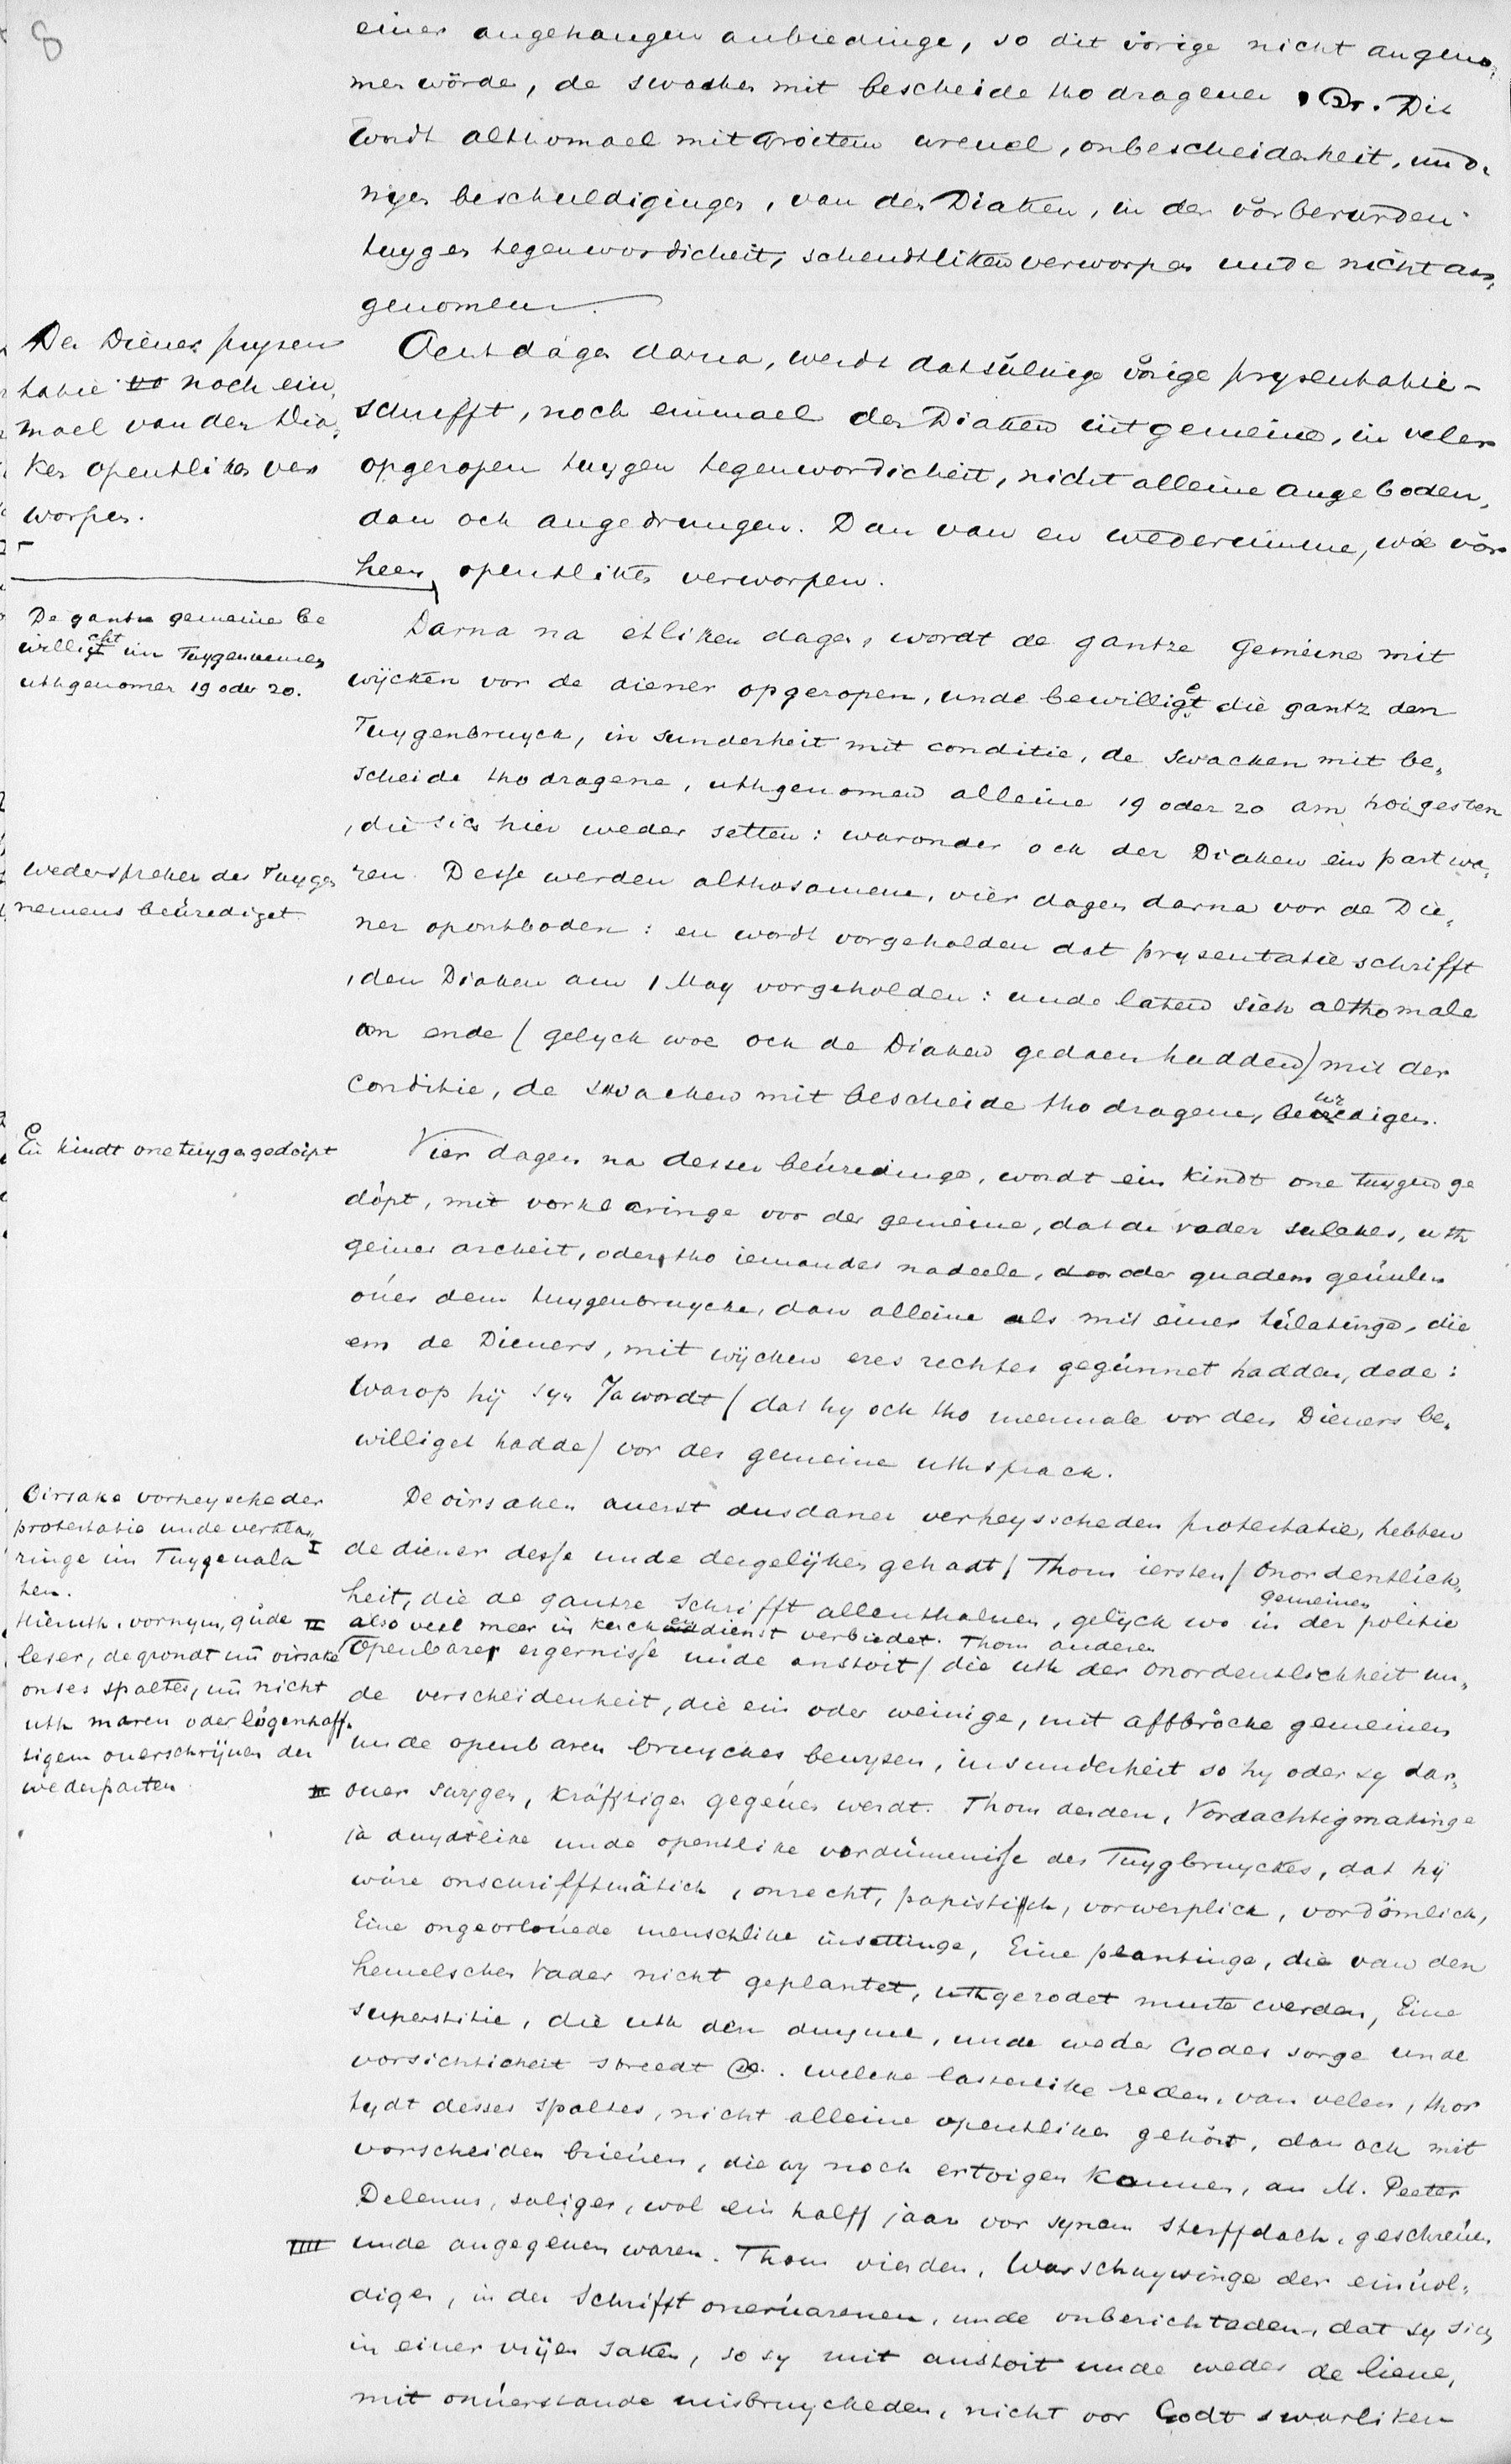 8
einer angehangen anbiedinge, so dit vörige nicht angeno„
men wörde, de swacken mit bescheide tho dragenen, Dit
Wordt althomael mit groiten wreuel, onbescheidenheit, und
nyen beschuldigingen, van der Diaken, in der vörberurden
tuygen tegenwordicheit, schendtliken verworpen unde nicht an„
genomen.
Der Diener prysen
tatie noch ein„
mael van den Dia„
ken opentliken ver
worpen.
Acht dagen darna, werdt datsülvige vörige prysentatie-
schrifft, noch einmael den Diaken int gemeine, in veler
opgeropen tuygen tegenwordicheit, nicht alleine angeboden,
dan ock angedrungen. Dan van en wederumme, woe vör
heen, opentliken verworpen.
De gantze gemeine be
willicht im Tuygennemen
uthgenomen 19 oder 20.
Darna na etliken dagen, wordt de gantze gemeine mit
wijcken vor de diener opgeropen, unde bewilliget die gantz den
Tuygenbruyck, in sunderheit mit conditie, de swacken mit be„
scheide tho dragene, uthgenomen alleine 19 oder 20 am hoigesten
, die sick hier weder setten: waronder ock der Diaken ein part wa„
wederspreker des Tuygen
nemens beüredigt.
ren. Desse werden althosamene, vier dagen darna vor de Die„
ner opontboden: en wordt vorgeholden dat prysentatie schrifft
, den Diaken am 1 May vorgeholden: unde laten sich althomale
am ende (gelyck woe ock de Diaken gedaen hadden) mit der
conditie, de swacken mit bescheide tho dragene, beuredigen.
Ein kindt one tuygen gedoipt
Vier dagen na desser beüredinge, wordt ein kindt one tuygen ge
döpt, mit vorklaringe vor der gemeine, dat de vader sulckes, uth
geiner archeit, oder tho iemandes nadeele, oder quadem geüulen
öuer dem tuygenbruycke, dan alleine als mit einer tülatinge, die
em de Dieners, mit wijcken eres rechtes gegünnet hadden, dede:
Warop hij syn Jawordt (dat hy ock tho meermale vor den Dieners be„
williget hadde) vor der gemeine uthsprack.
Oirsake vorheyscheder
protestatie unde verkla„
ringe im Tuygenala
ten.
De oirsaken auerst dusdaner verheysscheden protestatie, hebben
I de diener desse unde dergelijken gehadt (Thom iersten) Onordentlich„
heit, die de gantze Schrifft allenthaluen, gelijck wo in der gemeinen politie
Hieruth vornym, gude
leser, de grondt unde oirsake
onses spaltes, unde nicht
uth maren oder lögenhaff„
tigem ouerschrijuen der
wederparten.
II also veel meer in kerckendienst verbiedet. Thom anderen
Openbarer ergernisse unde anstoit (die uth der onordentlichkeit un„
de verscheidenheit, die ein oder weinige, mit affbröcke gemeinen
unde openbaren bruyckes bewysen, insunderheit so hy oder sy dar„
III ouer swygen, kräfftiger gegeuen werdt. Thom derden, Vordachtigmakinge
ja duydtlike unde opentlike vordümenisse des Tuygbruyckes, dat hij
wäre onschrifftmätich, onrecht, papistisch, vorwerplick, vordömlich,
Eine ongeorlouede menschlike insettinge, Eine plantinge, die van den
hemelschen Vader nicht geplantet, uthgerodet muste werden, Eine
superstitie, die uth den duyuel, unde weder Godes sorge unde
vorsichticheit streedt &c. welcke lasterlike reden, van velen, thor
tydt desses spaltes, nicht alleine opentliken gehört, dan ock mit
vorscheiden brieuen, die wy noch ertoigen konnen, an M. Peeter
Delenus, saliger, wol ein halff jaar vor synem sterffdach, geschreuen
IIII unde angegeuen waren. Thom vierden, Warschuywinge der einuol„
digen, in der Schrifft oneruarenen, unde unberichteden, dat sy sich
in einer vrijen saken, so sy mit anstoit unde weder de lieue,
mit onuerstande misbruyckeden, nicht vor Godt swarliken